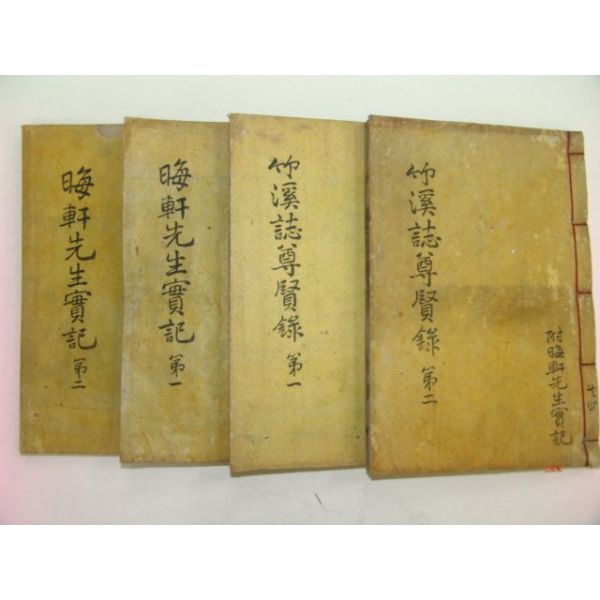 竹溪誌尊賢錄 第二
附晦軒先生實記
竹溪誌尊賢錄 第一
晦軒先生實記 第一
晦軒先生實記 第二